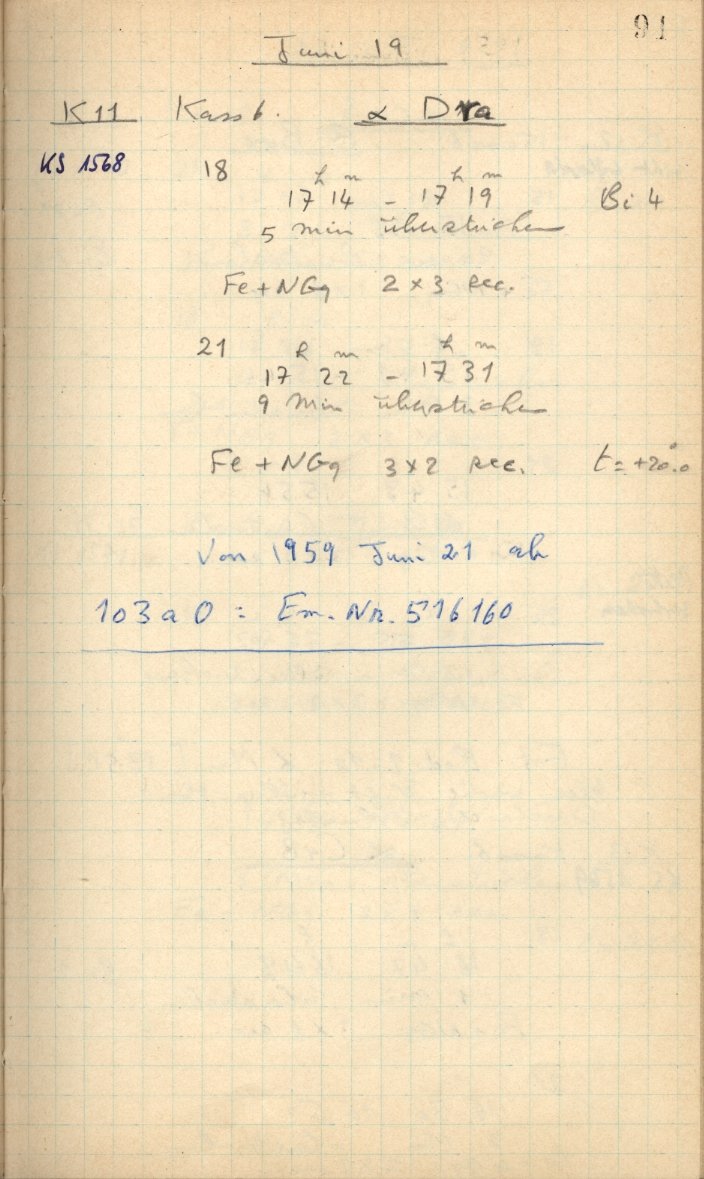 91
Juni 19
K11 Kass b. α Dra
KS 1568
18 17h 14m – 17h 19m Bi 4
5 Min überstrichen
Fe + NGg 2 × 3 sec.
21 17h 22m – 17h 31m
9 Min überstrichen
Fe + NGg 3 × 2 sec. t = +20°.0
Von 1959 Juni 21 ab
103 a O : Em. Nr. 516160